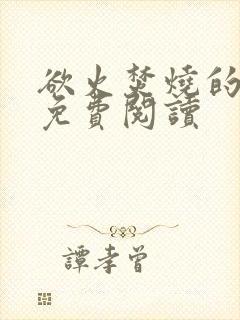 欲火焚燒的
免費閱讀
譚孝曾